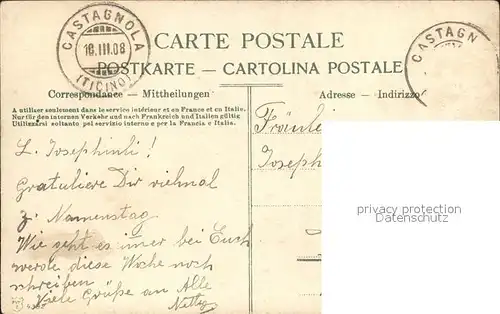 CASTAGNOLA
18.III.08
(TICINO)
CARTE POSTALE
CASTAGN
POSTKARTE — CARTOLINA POSTALE
Correspondance - Mittheilungen
Adresse - Indirizzo
A utiliser seulement dans le service intérieur et en France et en Italie.
Nur für den internen Verkehr und nach Frankreich und Italien gültig
Utilizzarsi soltanto pel servizio interno e per la Francia e Italia.
L. Josephinli!
Gratuliere Dir vielmal
z. Namenstag.
Wie geht es imer bei Euch
werde diese Woche noch
schreiben
Viele Grüße an Alle
Netty
Fräulei
Joseph
privacy protection
Datenschutz